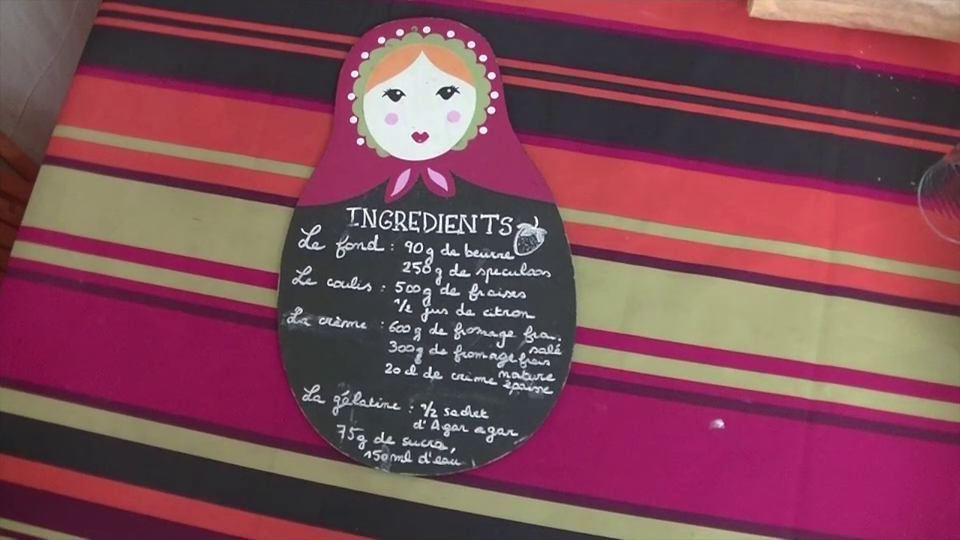 INGREDIENTS
Le fond : 90g de beurre
250g de speculoos
Le coulis : 500g de fraises
1/2 jus de citron
La crème : 600g de fromage frais
salé
300g de fromage frais
nature
20 cl de crème épaisse
La gélatine : 1/2 sachet
d'Agar agar
75g de sucre,
150ml d'eau